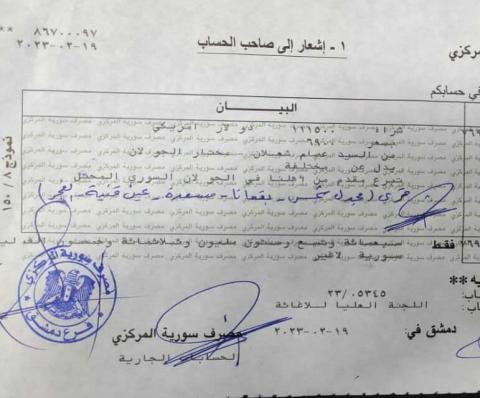 ٨٦٧٠٠٠٩٧ **
٢٠٢٣-٠٣-١٩
١ - إشعار إلى صاحب الحساب
المركزي
في حسابكم
البيان
شراء ١١١٥٠٠ دولار امريكي
بسعر ٦٩٠٠
من السيد عصام شعلان بختيار الجولان
بدل عن مختلفة
تبرع مقدم من اهلنا في الجولان السوري المحتل
قرى (مجدل شمس - بقعاثا - مسعدة - عين قنية - الغجر)
فقط سبعمائة وتسع وستون مليون وثلاثمائة وخمسون الف ليرة
سورية لاغير
نموذج ٨ / ١٥٠
**
٢٣/٠٥٣٤٥
اللجنة العليا للاغاثة
دمشق في: ٢٠٢٣-٠٣-١٩
مصرف سورية المركزي
الحسابات الجارية
مصرف سورية المركزي
فرع دمشق